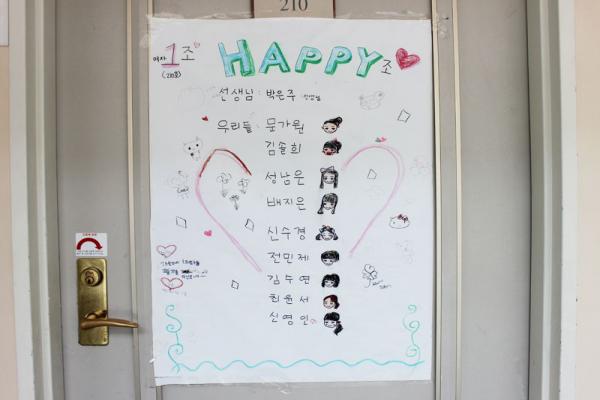 210
여자 1조
(210호)
HAPPY조
선생님 : 박은주
우리들 : 문가원
김솔희
성남운
배지은
신수경
전민제
김수연
최윤서
신영인